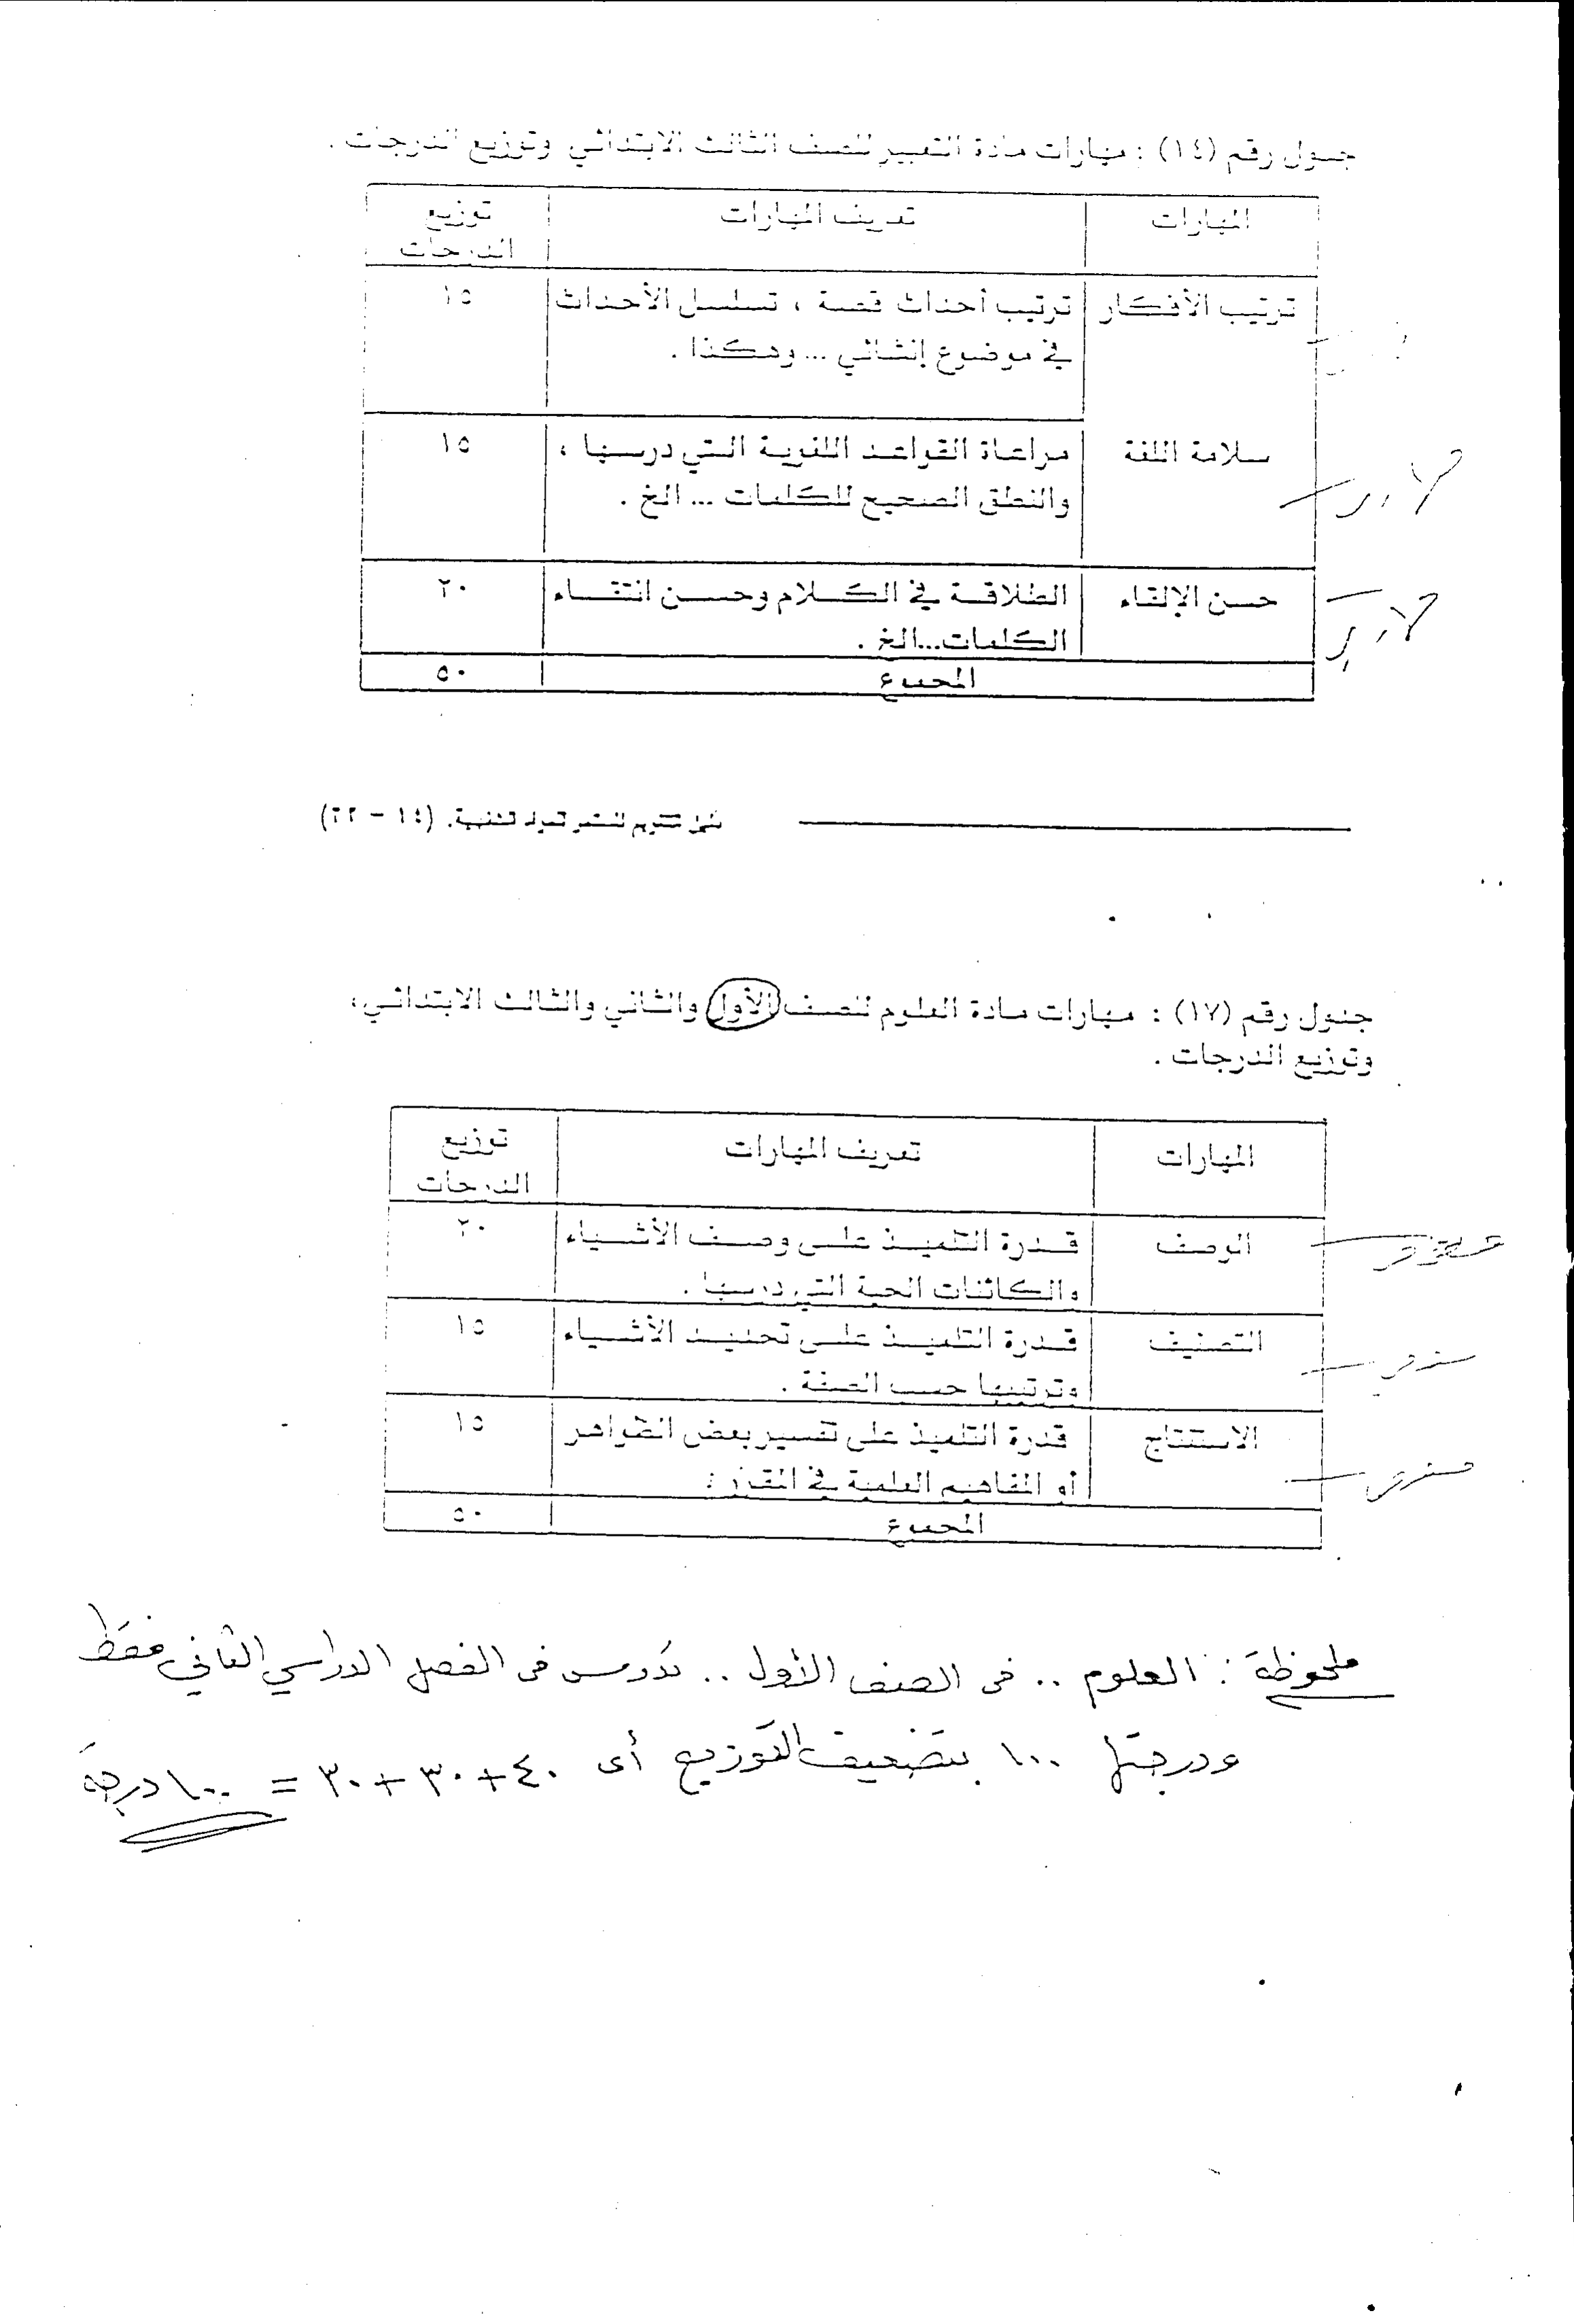 جدول رقم (١٤) : مهارات مادة التعبير للصف الثالث الابتدائي وتوزيع الدرجات .
المهارات تعريف المهارات توزيع الدرجات
ترتيب الأفكار ترتيب أحداث قصة ، تسلسل الأحداث ١٥
في موضوع إنشائي ... وهكذا .
سلامة اللغة مراعاة القواعد اللغوية التي درسها ، ١٥
والنطق الصحيح للكلمات ... الخ .
حسن الإلقاء الطلاقة في الكلام وحسن انتقاء ٢٠
الكلمات...الخ .
المجموع ٥٠
(١٤ - ٢٢)
جدول رقم (١٧) : مهارات مادة العلوم للصف الأول والثاني والثالث الابتدائي،
وتوزيع الدرجات .
المهارات تعريف المهارات توزيع الدرجات
الوصف قدرة التلميذ على وصف الأشياء ٢٠
والكائنات الحية التي درسها .
التصنيف قدرة التلميذ على تحديد الأشياء ١٥
وترتيبها حسب الصفة .
الاستنتاج قدرة التلميذ على تفسير بعض الظواهر ١٥
أو المفاهيم العلمية في المقرر .
المجموع ٥٠
ملحوظة : العلوم .. فى الصف الأول .. تدرس فى الفصل الدراسي الثاني فقط
ودرجتها ١٠٠ بتضعيف التوزيع أى ٤٠ + ٣٠ + ٣٠ = ١٠٠ درجة